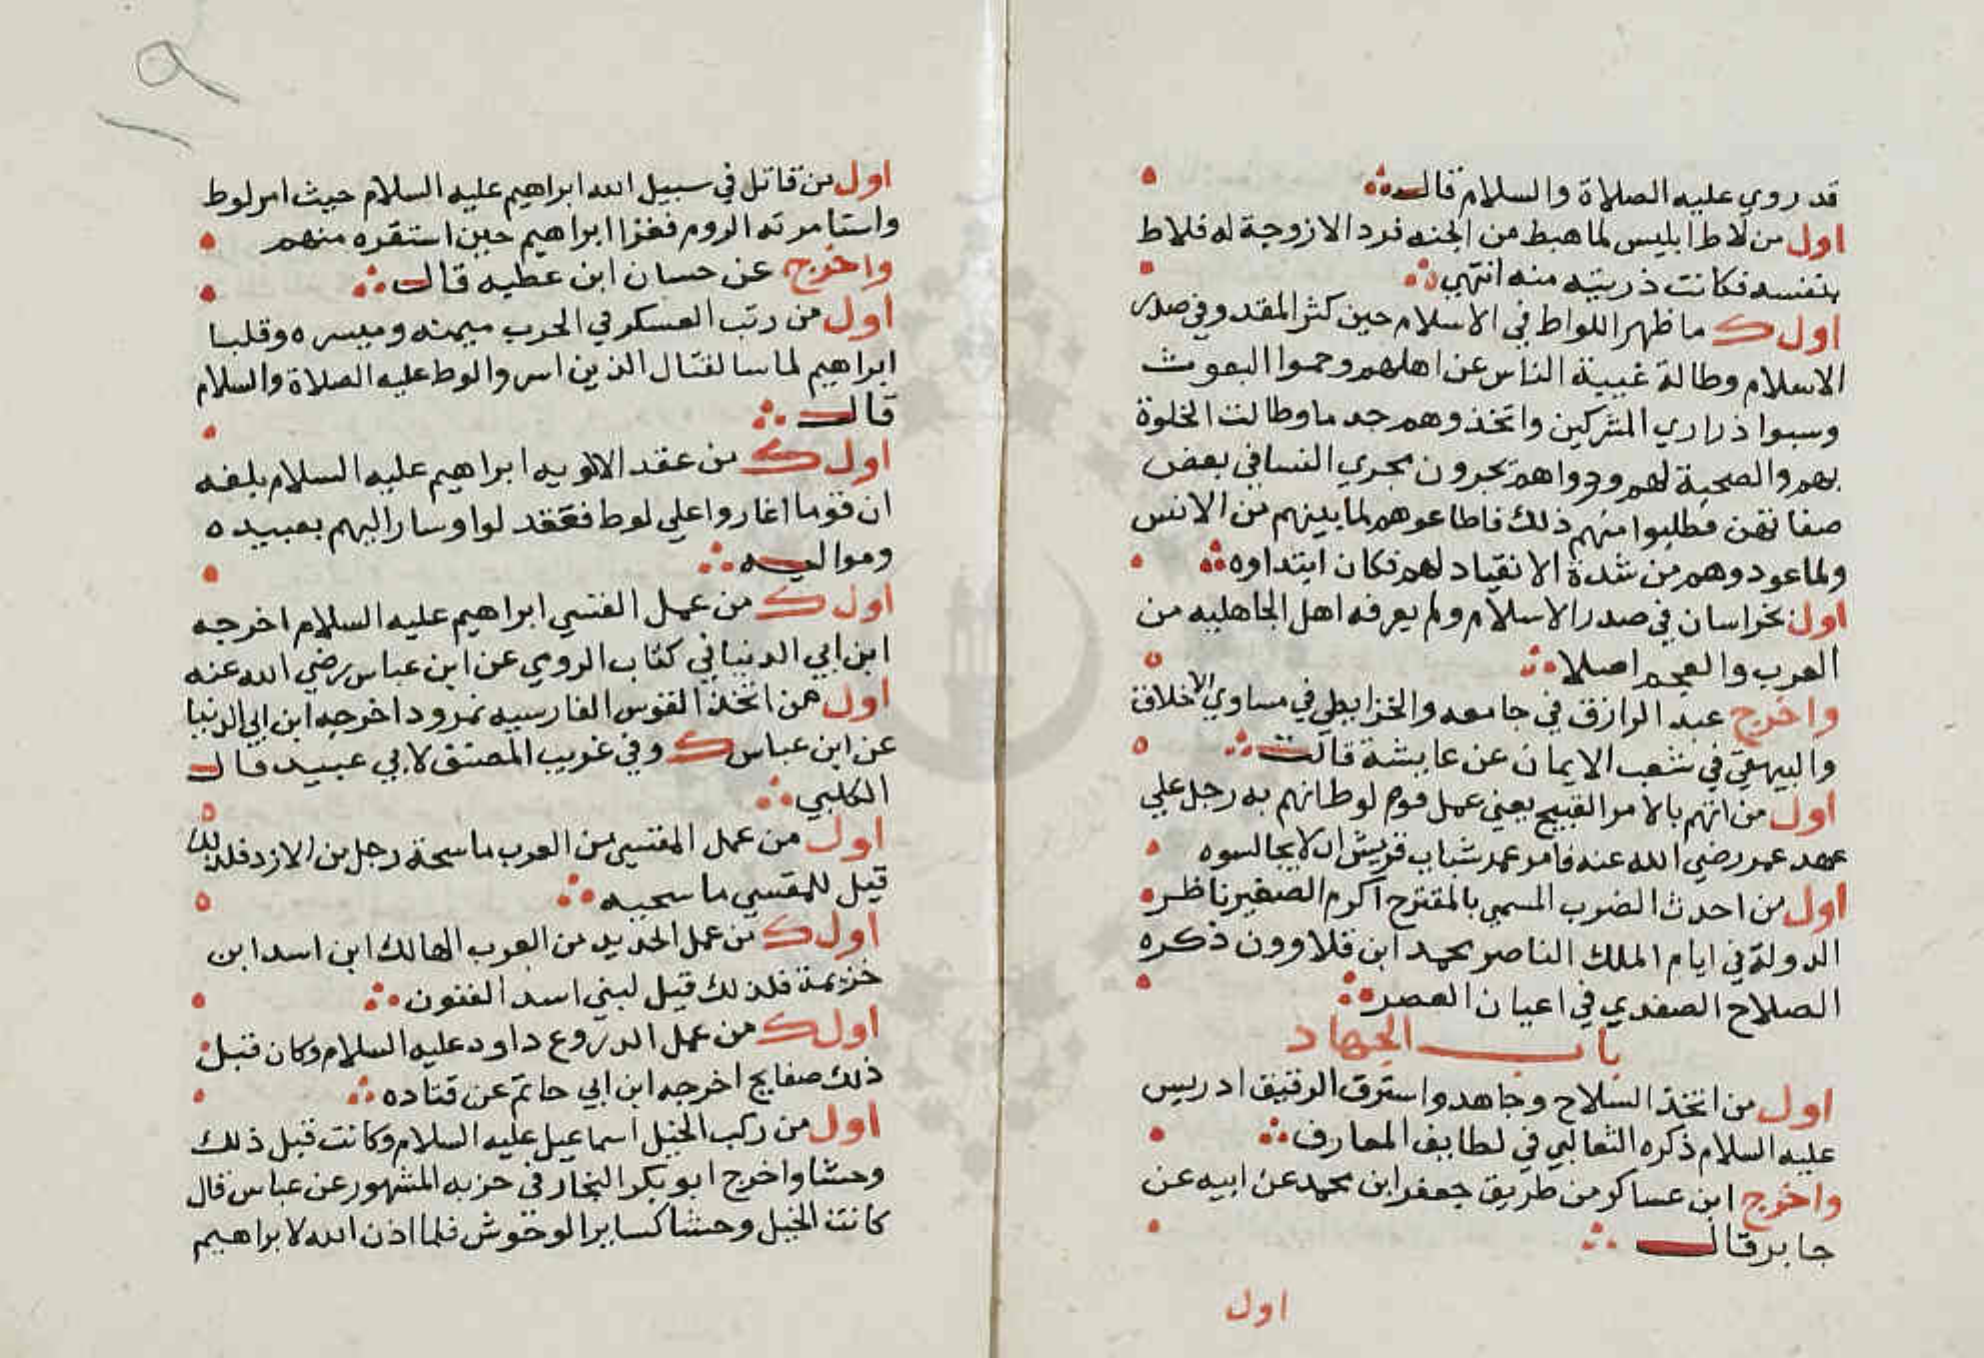 قد روي عليه الصلاة والسلام قالـــ
اول من لاط ابليس لما هبط من الجنه فرد الازوجة له فلاط
بنفسه فكانت ذريته منه انتهي
اول ك ما ظهر اللواط في الاسلام حين كثر المقد وفي صدر
الاسلام وطالة غيبة الناس عن اهلهم وحموا البعوث
وسبوا ذراري المشركين واتخذوهم حد ما وطالت الخلوة
بهم والصحبة لهم ورواهم يجرون مجري النسا في بعض
صفاتهن فطلبوا منهم ذلك فاطاعوهم لما بينهم من الانس
ولما عودوهم من شدة الانقياد لهم فكان ابتداوه
اول بخراسان في صدر الاسلام ولم يعرفه اهل الجاهليه من
العرب والعجم اصلا
واخرج عبد الرازق في جامعه والخرايطي في مساوي الاخلاق
والبيهقي في شعب الايمان عن عايشة قالت
اول من اتهم بالامر القبيح يعني عمل قوم لوط اتهم به رجل علي
عهد عمر رضي الله عنه فامر عمر شباب قريش ان لا يجالسوه
اول من احدث الضرب المسمي بالمقترح اكرم الصغير ناظر
الدولة في ايام الملك الناصر محمد ابن قلاوون ذكره
الصلاح الصفدي في اعيان العصر
باب الجهاد
اول من اتخذ السلاح وجاهد واسترق الرقيق ادريس
عليه السلام ذكره الثعالبي في لطايف المعارف
واخرج ابن عساكر من طريق جعفر ابن محمد عن ابيه عن
جابر قالـــ
اول
١٩
اول من قاتل في سبيل الله ابراهيم عليه السلام حيث اسر لوط
واستامرته الروم فغزا ابراهيم حين استقره منهم
واخرج عن حسان ابن عطيه قال
اول من رتب العسكر في الحرب ميمنه وميسره وقلبا
ابراهيم لما سا لقتال الذين اسروا لوط عليه الصلاة والسلام
قال
اول ك من عقد الالويه ابراهيم عليه السلام بلغه
ان قوما اغاروا علي لوط فعقد لوا وسار اليهم بعبيده
ومواليه
اول ك من عمل القسي ابراهيم عليه السلام اخرجه
ابن ابي الدنيا في كتاب الرمي عن ابن عباس رضي الله عنه
اول من اتخذ القوس الفارسيه نمرود اخرجه ابن ابي الدنيا
عن ابن عباس ك وفي غريب المصنف لابي عبيد قال
الكلبي
اول من عمل القسي من العرب ماسخة رجل من الازد فلذلك
قيل للقسي ماسخيه
اول ك من عمل الحديد من العرب الهالك ابن اسد ابن
خزيمة فلذلك قيل لبني اسد القنون
اول ك من عمل الدروع داود عليه السلام وكان قبل
ذلك صفايح اخرجه ابن ابي حاتم عن قتاده
اول من ركب الخيل اسماعيل عليه السلام وكانت قبل ذلك
وحشا واخرج ابو بكر النجار في حزبه المشهور عن عباس قال
كانت الخيل وحشا كساير الوحوش فلما اذن الله لابراهيم